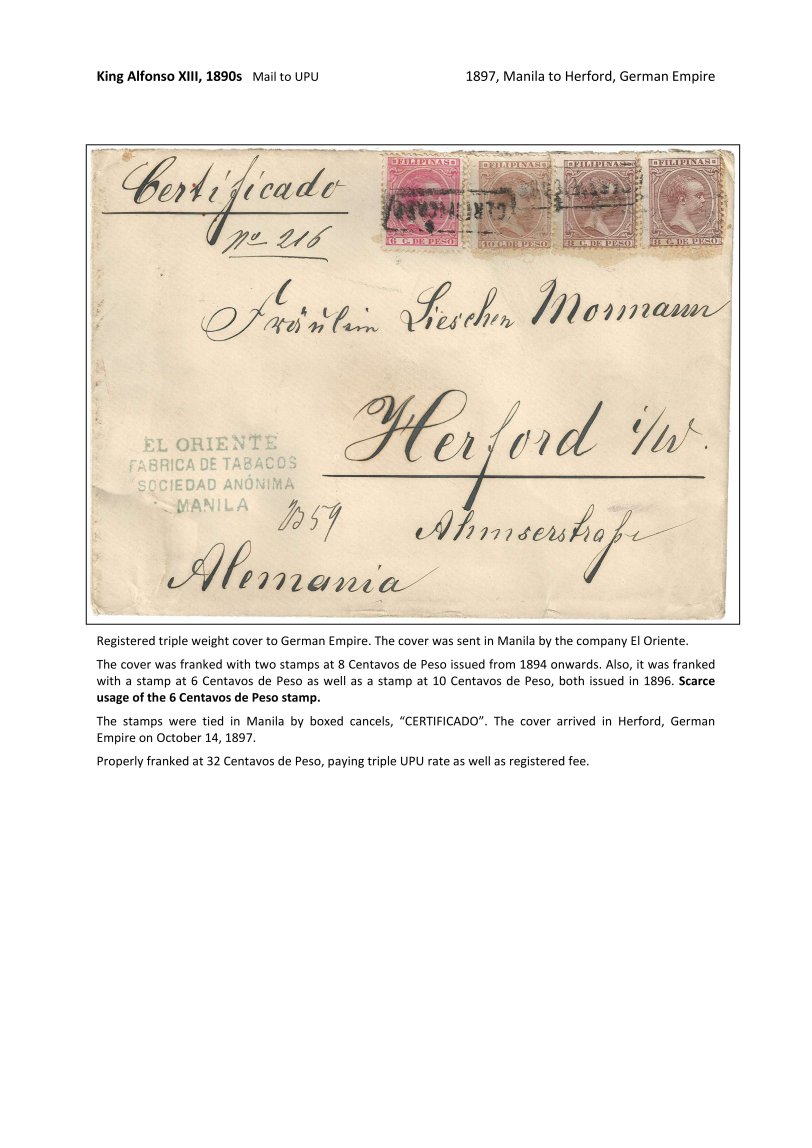 King Alfonso XIII, 1890s Mail to UPU 1897, Manila to Herford, German Empire
Certificado
Nº 216
FILIPINAS FILIPINAS FILIPINAS FILIPINAS
CERTIFICADO CERTIFICADO
6 C. DE PESO 10 C. DE PESO 8 C. DE PESO 8 C. DE PESO
Fräulein Lieschen Mormann
Herford i/W.
EL ORIENTE
FABRICA DE TABACOS
SOCIEDAD ANÓNIMA
MANILA
359
Ahmserstraße
Alemania
Registered triple weight cover to German Empire. The cover was sent in Manila by the company El Oriente.
The cover was franked with two stamps at 8 Centavos de Peso issued from 1894 onwards. Also, it was franked
with a stamp at 6 Centavos de Peso as well as a stamp at 10 Centavos de Peso, both issued in 1896. Scarce
usage of the 6 Centavos de Peso stamp.
The stamps were tied in Manila by boxed cancels, “CERTIFICADO”. The cover arrived in Herford, German
Empire on October 14, 1897.
Properly franked at 32 Centavos de Peso, paying triple UPU rate as well as registered fee.